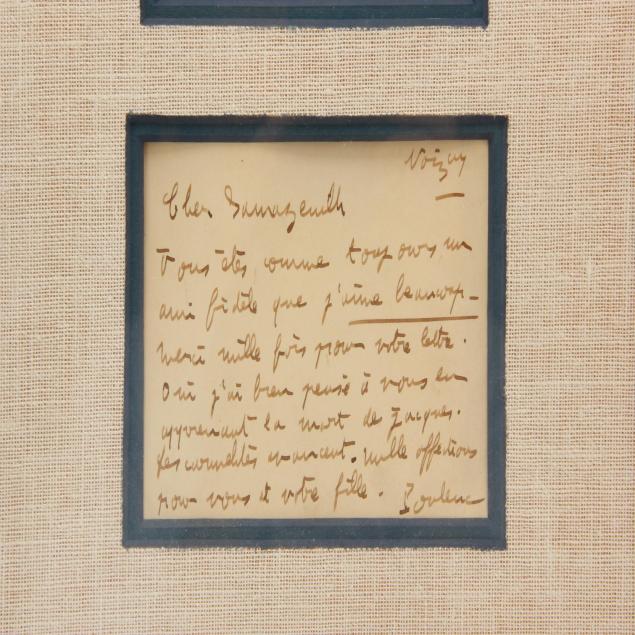 Noizay
Cher Samazeuilh
Vous êtes comme toujours un
ami fidèle que j'aime beaucoup -
merci mille fois pour votre lettre.
Oui j'ai bien pensé à vous en
apprenant la mort de Jacques.
Les carmélites avancent. Mille affections
pour vous et votre fille. Poulenc